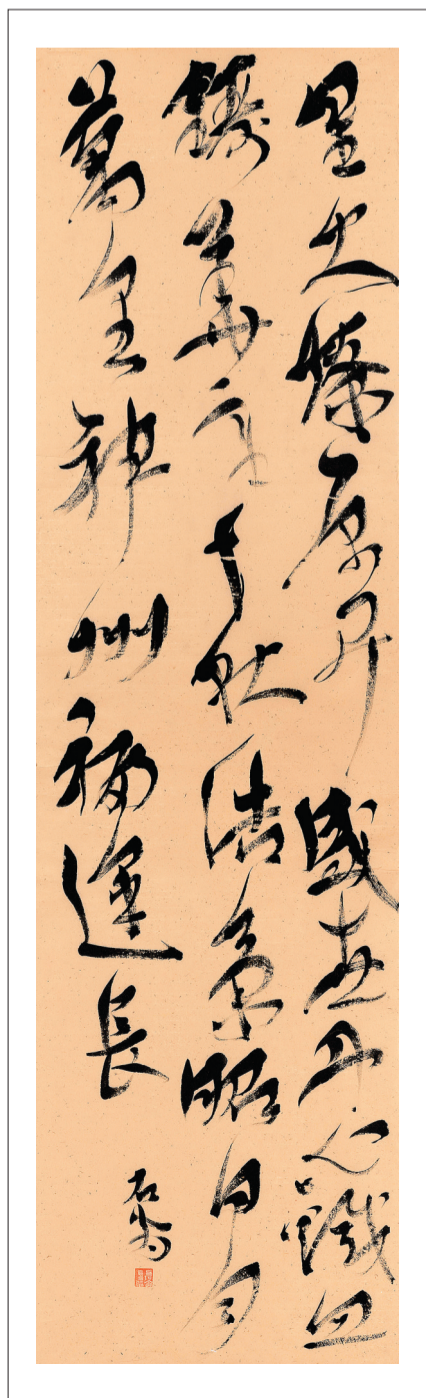 星火燎原開盛世丹心鐵血
鑄華章千秋浩氣昭日月
萬里神州福運長
石